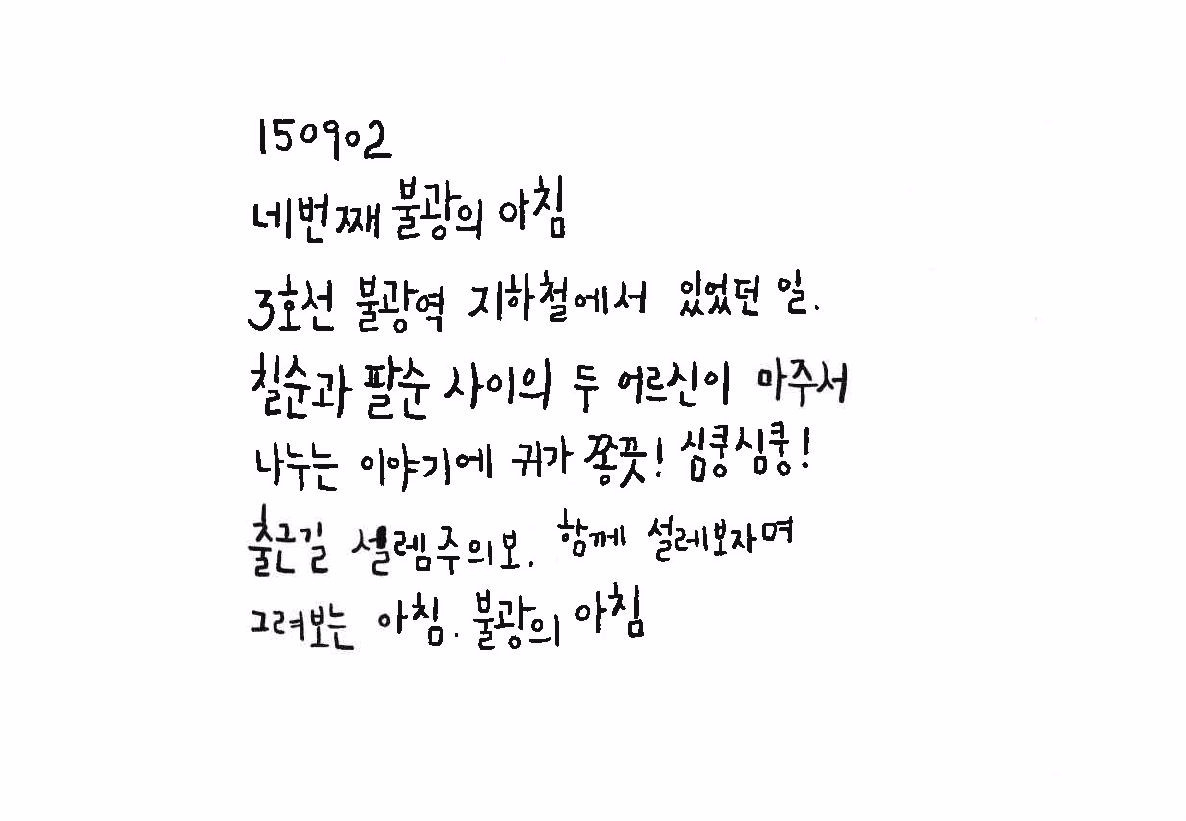 150902
네번째 불광의 아침
3호선 불광역 지하철에서 있었던 일.
칠순과 팔순 사이의 두 어르신이 마주서
나누는 이야기에 귀가 쫑끗! 심쿵심쿵!
출근길 셀렘주의보. 함께 설레보자며
그려보는 아침. 불광의 아침